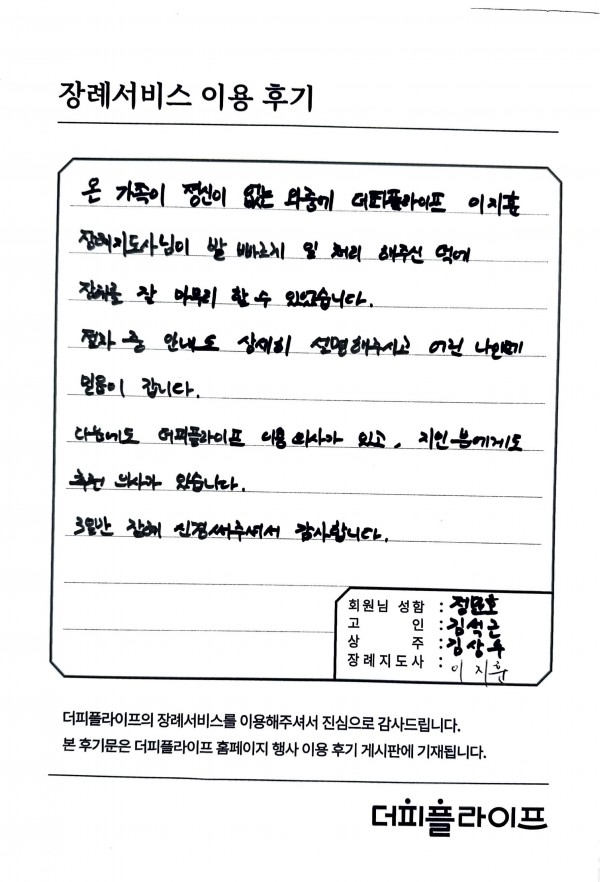 장례서비스 이용 후기
온 가족이 정신이 없는 와중에 더피플라이프 이지훈
장례지도사님이 발 빠르게 일 처리 해주신 덕에
장례를 잘 마무리 할 수 있었습니다.
절차 중 안내도 상세히 설명해주시고 어린 나이인데
믿음이 갑니다.
다음에도 더피플라이프 이용 의사가 있고, 지인분에게도
추천 의사가 있습니다.
3일간 잘해 신경써주셔서 감사합니다.
회원님 성함 : 정문호
고 인 : 김석근
상 주 : 김상우
장례지도사 : 이지훈
더피플라이프의 장례서비스를 이용해주셔서 진심으로 감사드립니다.
본 후기문은 더피플라이프 홈페이지 행사 이용 후기 게시판에 기재됩니다.
더피플라이프